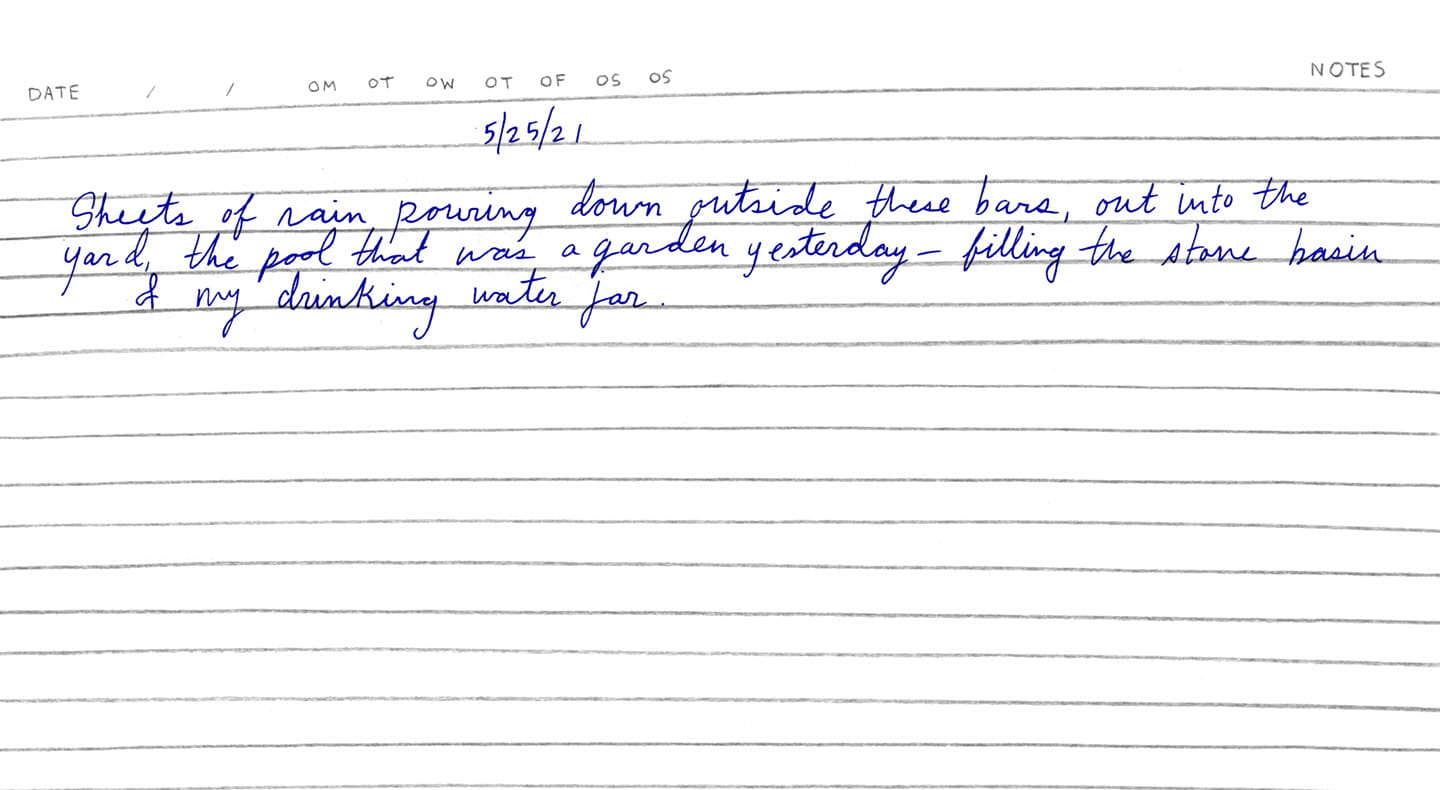 DATE / / OM OT OW OT OF OS OS NOTES
5/25/21
Sheets of rain pouring down outside these bars, out into the
yard, the pool that was a garden yesterday – filling the stone basin
& my drinking water jar.